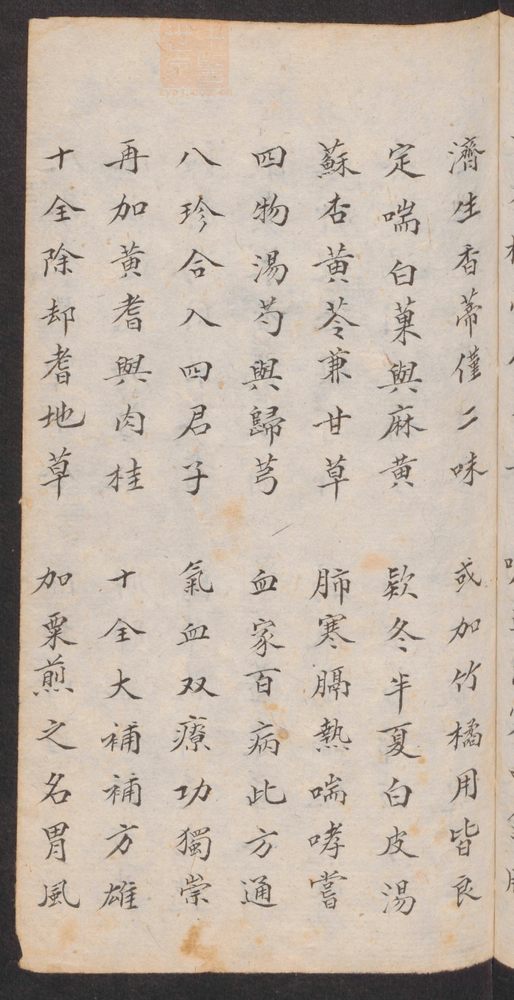 濟生香蒂僅二味　或加竹橘用皆良
定喘白菓與麻黄　欵冬半夏白皮湯
蘇杏黄芩兼甘草　肺寒膈熱喘哮嘗
四物湯芍與歸芎　血家百病此方通
八珍合入四君子　氣血双療功獨崇
再加黄耆與肉桂　十全大補補方雄
十全除却耆地草　加粟煎之名胃風